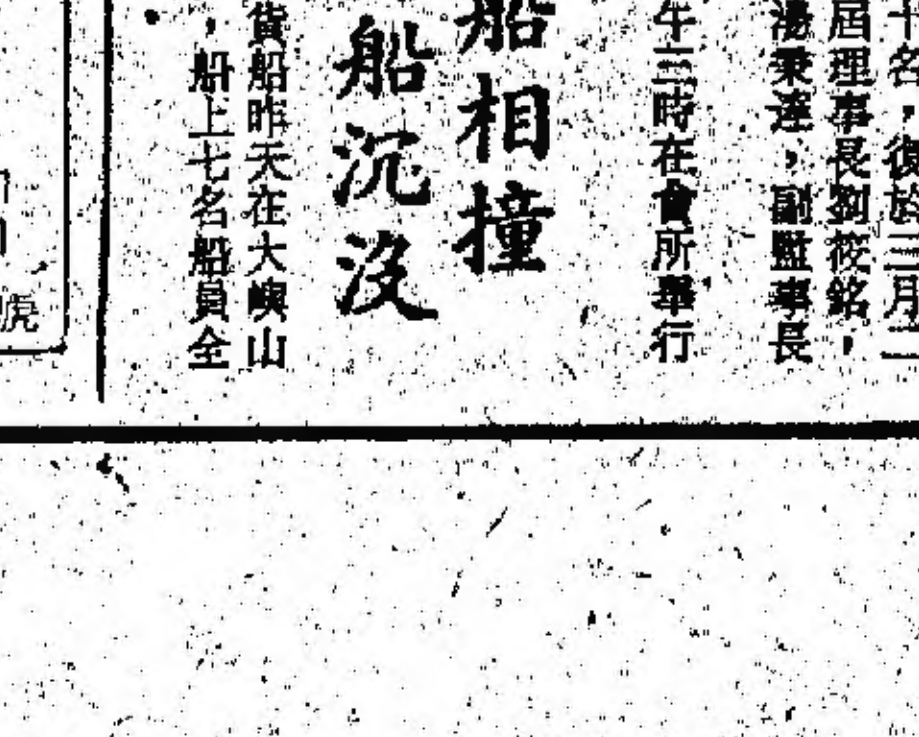 十名，復於三月二
屆理事長劉筱銘，
湯秉達，副監事長
午三時在會所舉行
船相撞
船沉没
貨船昨天在大嶼山
，船上七名船員全
號